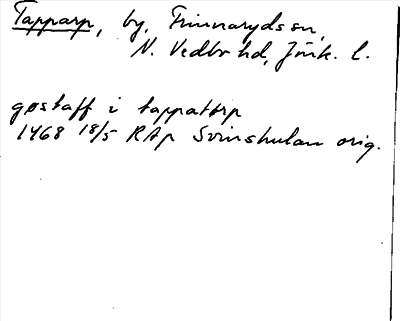 Tapparp, by, Frinnaryds sn,
N. Vedbo hd, Jönk. l.
gøstaff i tappatorp
1468 18/5 RAp Svinshulan orig.